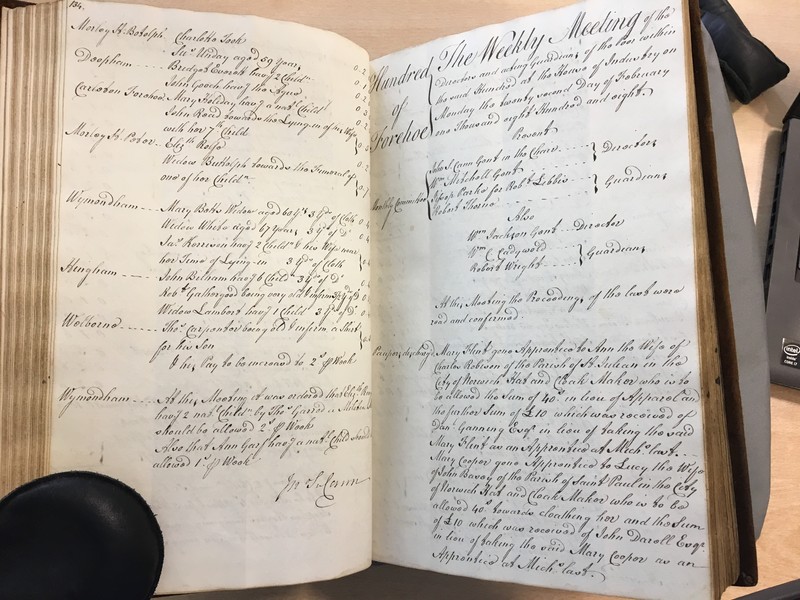 134.
Morley St Botolph Charlotte Took
Jas. Juday aged 59 years 0.2
Deopham Bridget Everett havg. 2 Childn. 0.2
John Gooch havg. the Ague
Carleton Forehoe Mary Holiday havg. a natl. Child
John Read towards the Lying-in of his Wife
with her 7th. Child
Morley St. Peter Elizth.
Widow Buttolph towards the Funeral of
one of her Childn.
Wymondham Mary Botts Widow aged 60 yrs. 3 yds. of Cloth
Widow aged 67 years 3 yds. of Do.
Jas. havg. 2 Childn. & his Wife near
her Time of Lying-in 3 yds. of Cloth
Hingham John Belham havg. 6 Childn. 3 yds. of Do.
Robt. Gathergood being very old & infirm 3 yds. of Do.
Widow Lambert havg. 1 Child 3 yds. of Do.
Welborne Thos. Carpenter being old & infirm a Shirt
for his Son
the Pay to be increased to 2s. p Week
Wymondham At this Meeting it was ordered that Elizth.
havg. 2 natl. Childn. by Thos. Garred a
should be allowed 2s. p Week
Also that Ann havg. a natl. Child should be
allowed 1s. p Week
Jn. S. Cann
Hundred
of
Forehoe
The Weekly Meeting of the
Directors and acting Guardians of the Poor within
the said Hundred at the House of Industry on
Monday the twenty second Day of February
one Thousand eight Hundred and eight.
Present
John S. Cann Gent. in the Chair
Wm. Mitchell Gent. Directors
Monthly Committee Joseph Parke for Robt. Lebbis
Robert Thorne Guardians
Also
Wm. Jackson Gent. Director
Wm. C. Cadywold
Robert Wright Guardians
At this Meeting the Proceedings of the last were
read and confirmed.
Paupers discharged Mary Flint gone Apprentice to Ann the Wife of
Charles Robison of the Parish of St. Julian in the
City of Norwich Hat and Cloak Maker who is to
be allowed the Sum of 40s. in lieu of Apparel and
the further Sum of £10 which was received of
Dan. Ganning Esqr. in lieu of taking the said
Mary Flint as an Apprentice at Michs. last.
Mary Cooper gone Apprentice to Lucy the Wife
of John Bavey of the Parish of Saint Paul in the City
of Norwich Hat and Cloak Maker who is to be
allowed 40s. towards cloathing her and the Sum
of £10 which was received of John Darell Esqr.
in lieu of taking the said Mary Cooper as an
Apprentice at Michs. last.
intel
inside
CORE i7